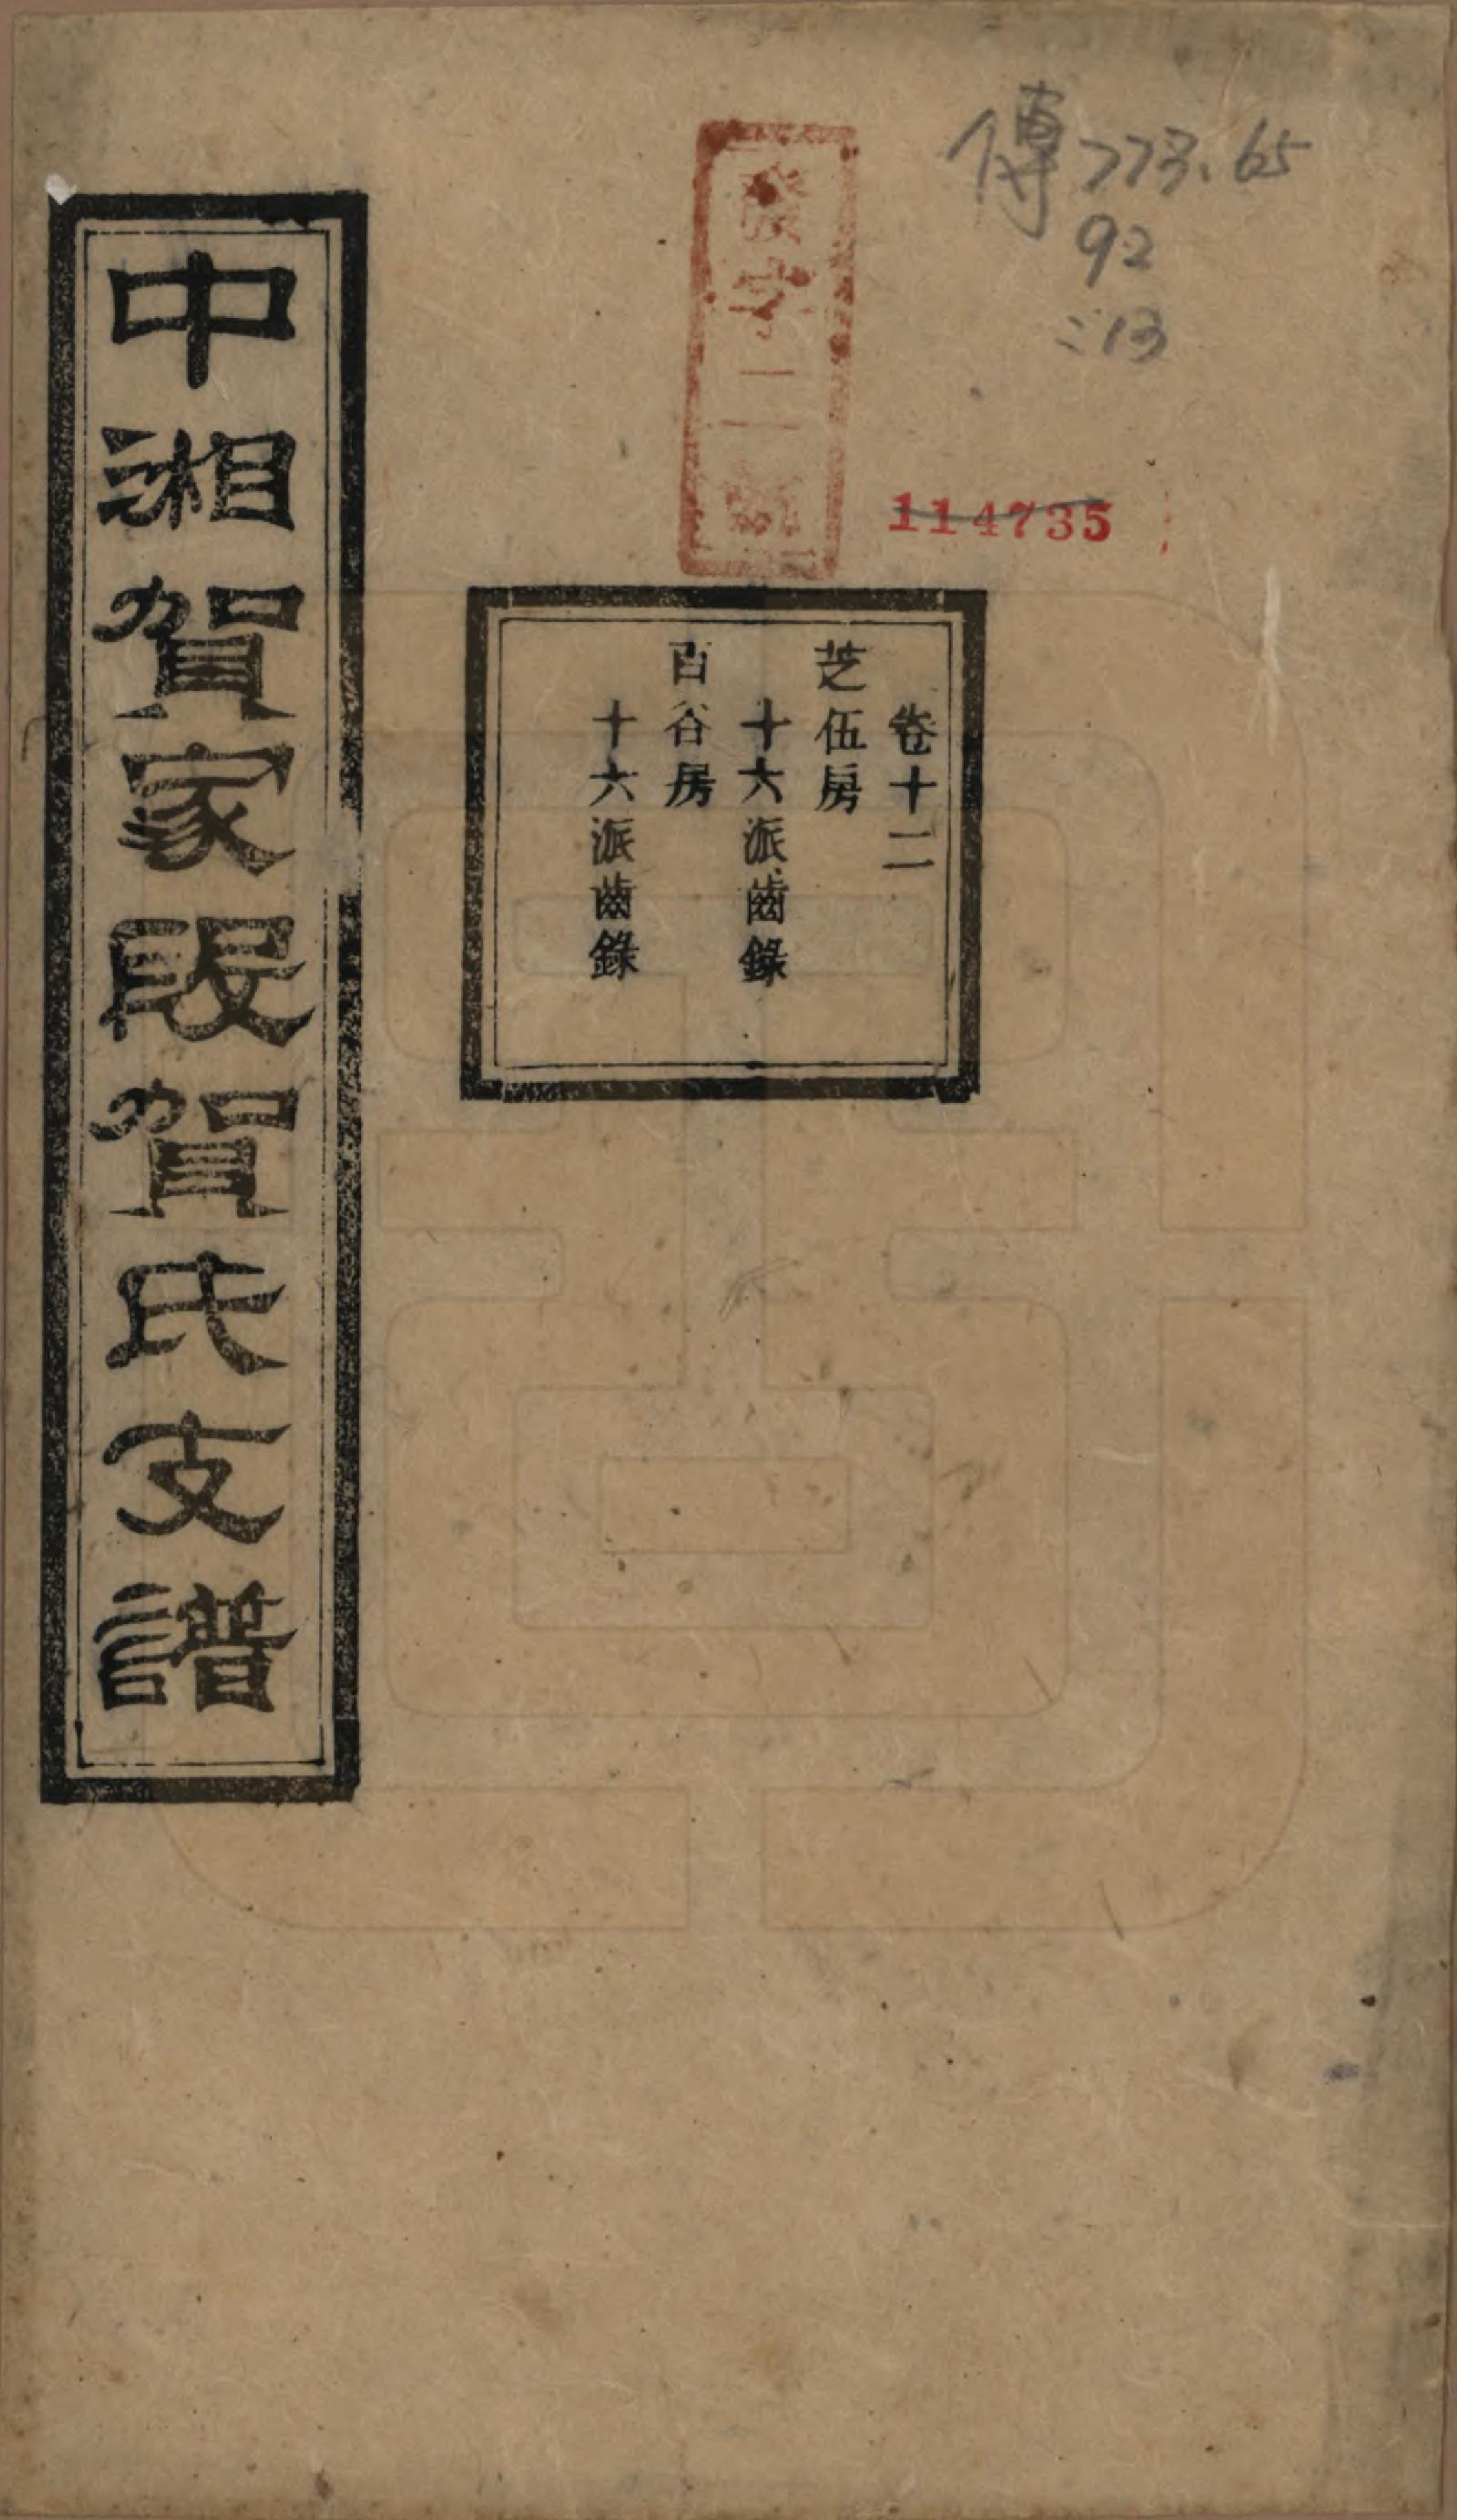 傳773.65
92
:13
114735
字二
卷十二
芝伍房
十六派齒錄
百谷房
十六派齒錄
中湘賀家段賀氏支譜